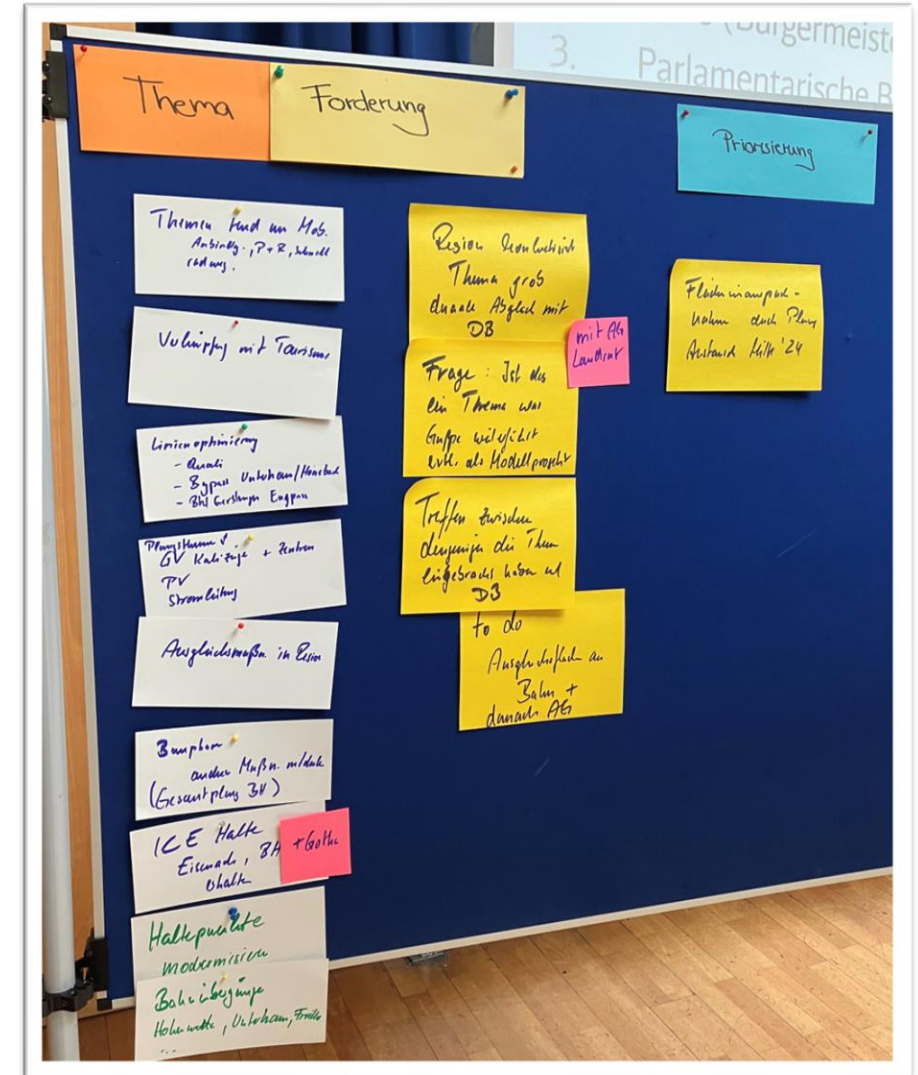 (Bürgermeiste
3. Parlamentarische B
Thema
Forderung
Priorisierung
Themen rund um Mob.
Anbindg., P+R, Schnell
radweg.
Verknüpfg mit Tourismus
Linienoptimierung
- Quali
- Bypass Unterhaun/Hönebach
- Bhf Gerstungen Engpass
GV Kalizüge + Zentren
PV
Stromleitung
Ausgleichsmaßn. in Region
Bauphase
andere Maßn. m/denk
(Gesamtplang BH)
ICE Halte
Eisenach, BH
erhalten
+ Gotha
Haltepunkte
modernisieren
Bahnübergänge
Unterhaun,
...
Region konkretisiert
Thema grob
danach Abgleich mit
DB
mit AG
Landrat
Frage: Ist das
ein Thema was
Gruppe weiterführt
evtl. als Modellprojekt
Treffen zwischen
denjenigen die Them
eingebracht haben und
DB
to do
Ausgleichsflächen an
Bahn +
danach AG
Flächeninanspruch-
nahme durch Planung
Austausch Mitte '24